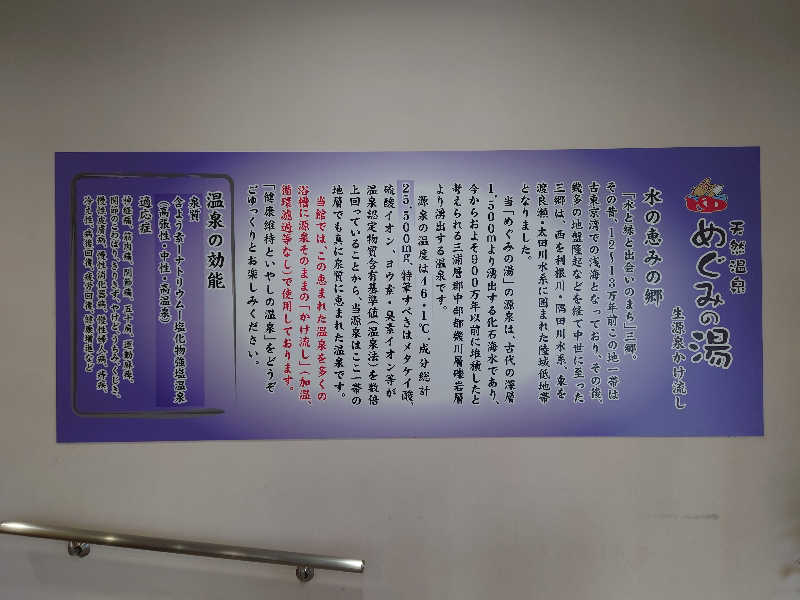 天然温泉
めぐみの湯
生源泉かけ流し
水の恵みの郷
「水と緑と出会いのまち」三郷。
その昔、12～13万年前この地一帯は
古東京湾での浅海となっており、その後、
幾多の地盤隆起などを経て中世に至った
三郷は、西を利根川・隅田川水系、東を
渡良瀬・太田川水系に囲まれた陸域低地帯
となりました。
当「めぐみの湯」の源泉は、古代の深層
1,500mより湧出する化石海水であり、
今からおよそ900万年以前に堆積したと
考えられる三浦層群中部都磯川層礫岩層
より湧出する温泉です。
源泉の温度は46.1℃、成分総計
25,500mg、特筆すべきはメタケイ酸、
硫酸イオン、ヨウ素・臭素イオン等が
温泉認定物質含有基準値（温泉法）を数倍
上回っていることから、当源泉はここ一帯の
地層でも真に泉質に恵まれた温泉です。
当館では、この恵まれた温泉を多くの
浴槽に源泉そのままの「かけ流し」（加温、
循環濾過等なし）で使用しております。
「健康維持といやしの温泉」をどうぞ
ごゆっくりとお楽しみください。
温泉の効能
泉質
含よう素－ナトリウム－塩化物強塩温泉
（高張性・中性・高温泉）
適応症
神経痛、筋肉痛、関節痛、五十肩、運動麻痺、
関節のこわばり、うちみ、くじき、
慢性皮膚病、慢性消化器病、慢性婦人病、痔疾、
冷え性、病後回復、疲労回復、健康増進など